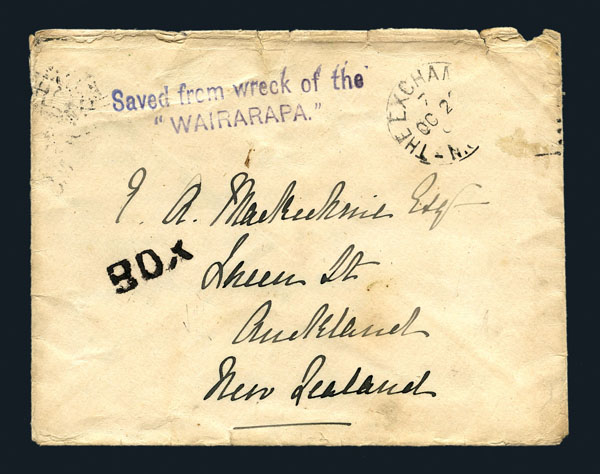 Saved from wreck of the
"WAIRARAPA."
THE EXCHA
OC 2
N.
A. Mackechnie Esqr
BOX
Queen St
Auckland
New Zealand